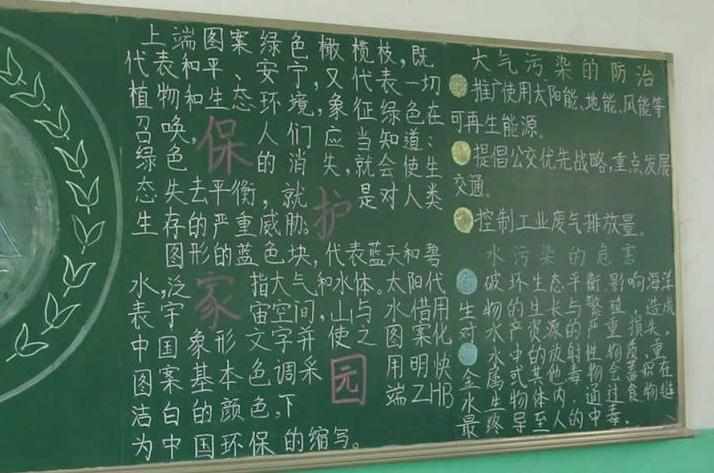 上端图案绿色橄榄枝，既
代表和平、安宁，又代表一切
植物和生态环境，象征绿色在
召唤，人们应当知道：
绿色的消失，就会使生
态失去平衡，就是对人类
生存的严重威胁。
图形的蓝色块，代表蓝天和碧
水，泛指大气和水体。太阳代
表宇宙空间，山与水借用
中国象形文字并使之图案化
图案基本色调采用明快
洁白的颜色，下端ZHB
为中国环保的缩写。
保
护
家
园
大气污染的防治
推广使用太阳能、地能、风能等
可再生能源。
提倡公交优先战略，重点发展
交通。
控制工业废气排放量。
水污染的危害
破坏生态平衡，影响海洋
生物的生长与繁殖，造成
对水产资源的严重损失。
水中的放射性物质，重
金属式其他毒物会蓄积在
水生物体内，通过食物链
最终导至人的中毒。